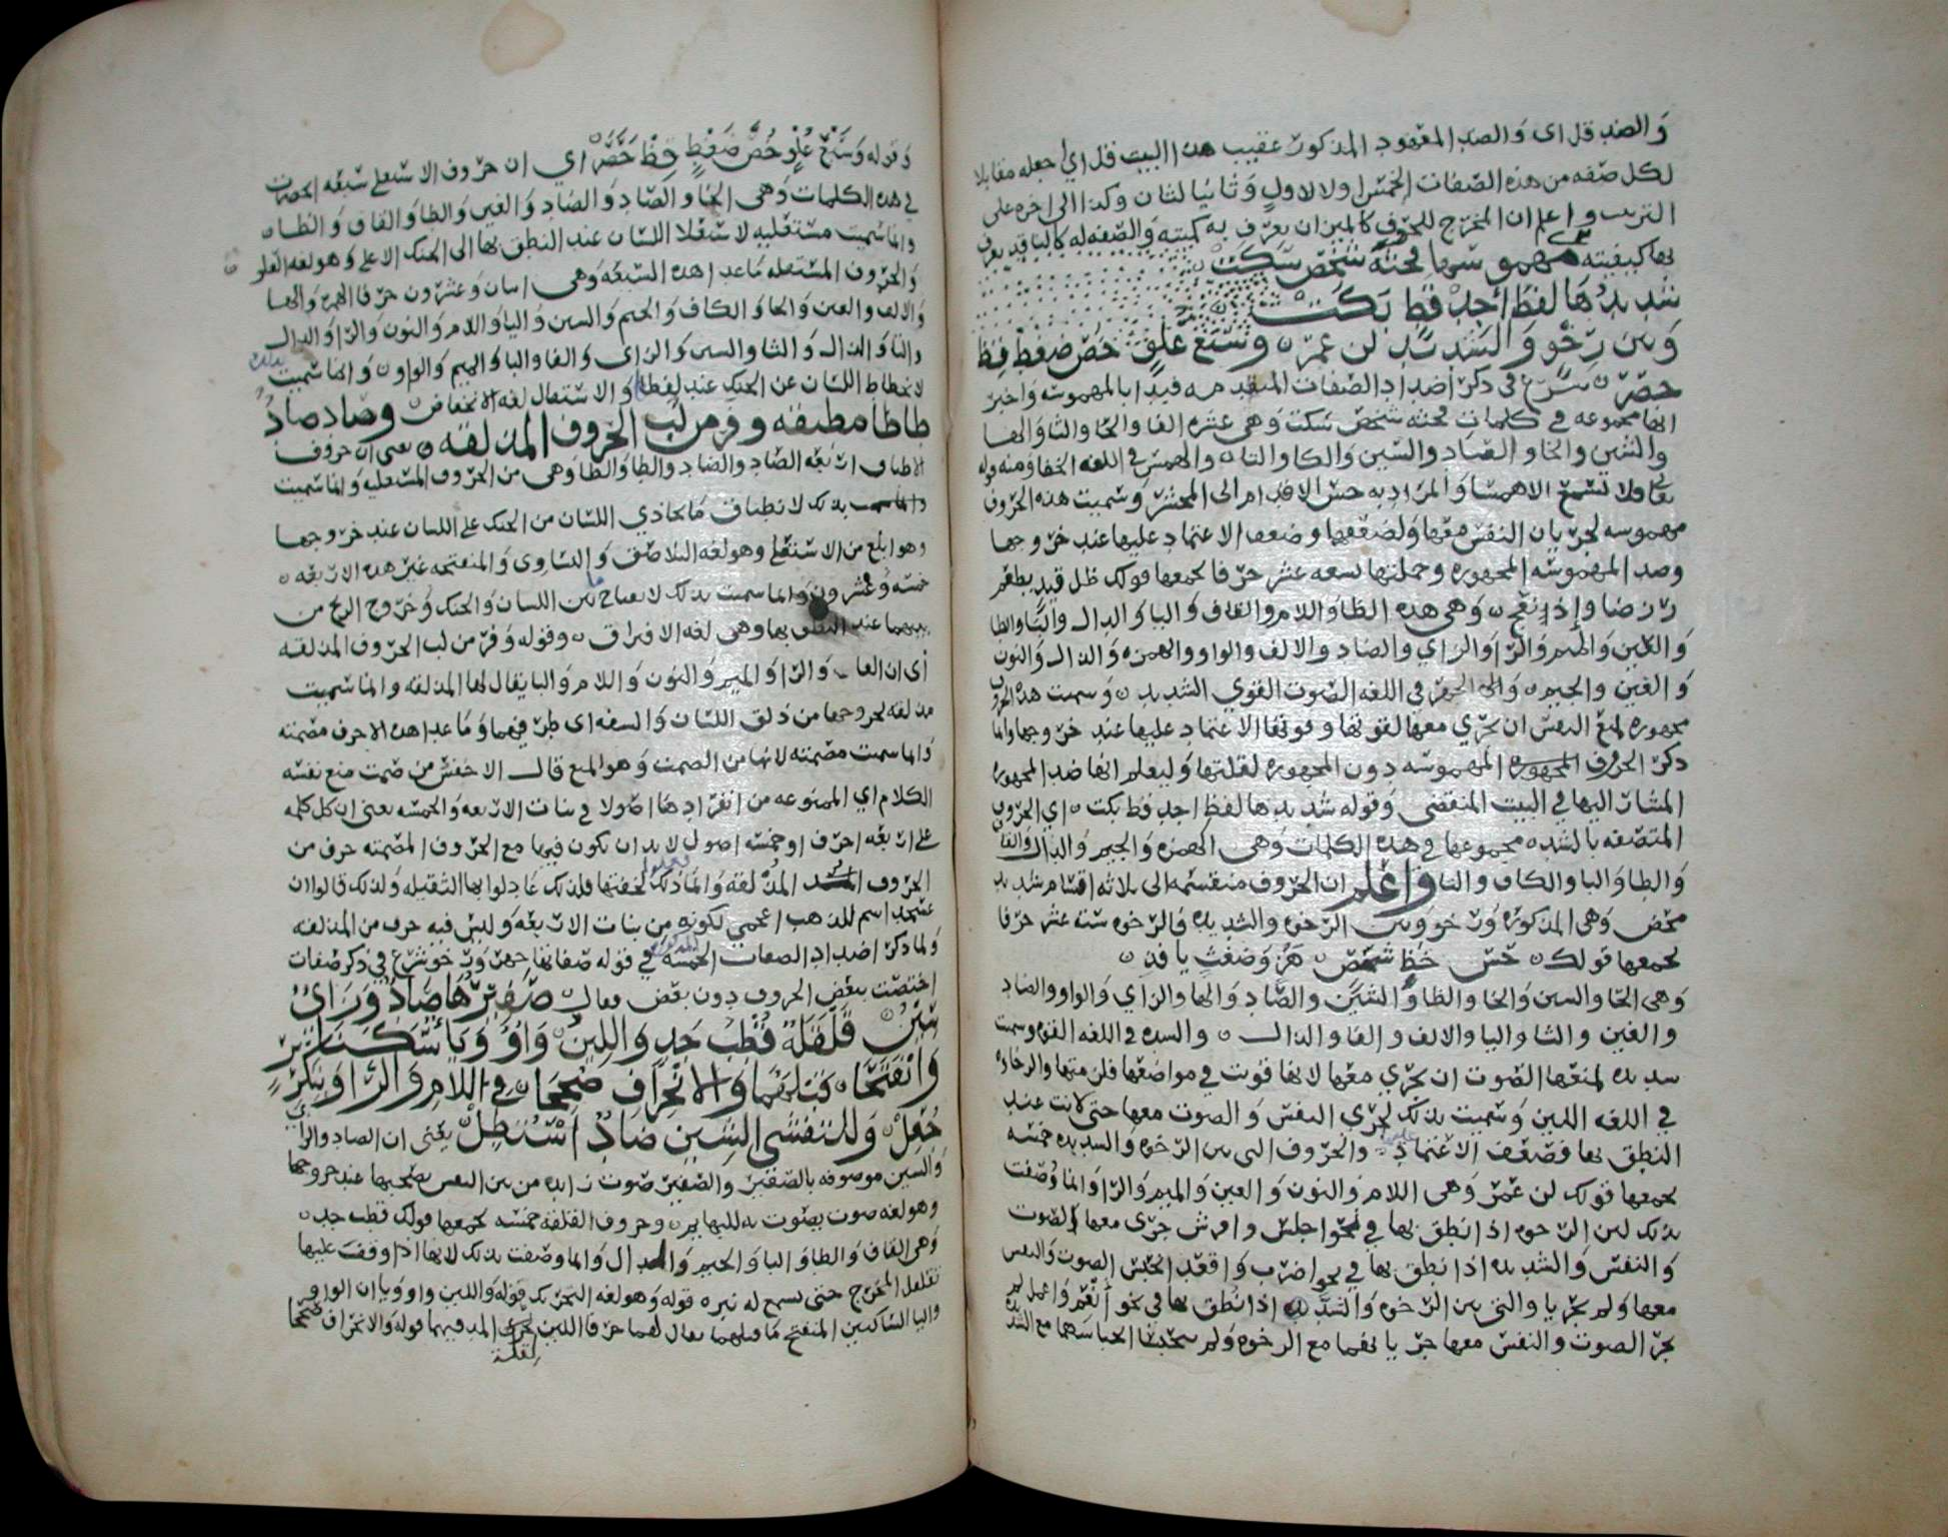 والضد قل اى والضد المعقود المذكور عقيب هذا البيت قل اي اجعله مقابلا
لكل صفه من هذه الصفات الخمس اولا لاول وثانيا لثان وكذا الى اخره على
الترتيب واعلم ان المخرج للحرف كالميزان يعرف به كميته والصفه له كالناقد يعرف
بها كيفيته مهموسها فحثه شخص سكت
شديدها لفظ اجد قط بكت
وبين رخو والشديد لن عمر وسبع علو خص ضغط قظ
حصر شرع في ذكر اضداد الصفات المتقدمه فبدا بالمهموسه واخبر
انها مجموعه في كلمات فحثه شخص سكت وهي عشره الفا والحا والثا والها
والشين والخا والصاد والسين والكاف والتا والهمس في اللغه الخفا ومنه قوله
تعالى فلا تسمع الا همسا والمراد به حس الاقدام الى المحشر وسميت هذه الحروف
مهموسه لجريان النفس معها ولضعفها وضعف الاعتماد عليها عند خروجها
وضد المهموسه المجهوره وجملتها تسعه عشر حرفا يجمعها قولك ظل قيد بطغم
زر ضا و اذ نعج وهي هذه الظا واللام والقاف واليا والدال والبا والطا
والغين والميم والرا والزاي والضاد والالف والواو والهمزه والذال والنون
والعين والجيم والجهر في اللغه الصوت القوي الشديد وسميت هذه الحروف
مجهوره لمنع النفس ان يجري معها لقوتها وقوه الاعتماد عليها عند خروجها وانما
ذكر الحروف المجهوره المهموسه دون المجهوره لقلتها وليعلم انها ضد المجهوره
المشار اليها في البيت المنقضي وقوله شديدها لفظ اجد قط بكت اي الحروف
المتصفه بالشده مجموعها في هذه الكلمات وهي الهمزه والجيم والدال والقاف
والطا والبا والكاف والتا واعلم ان الحروف منقسمه الى ثلاثه اقسام شديد
محض وهي المذكوره ورخو وبين الرخوه والشديده فالرخوه سته عشر حرفا
يجمعها قولك خس حظ شخص هز وضغث يا فذ
وهي الخا والسين والحا والظا والشين والصاد والها والزاي والواو والضاد
والغين والثا واليا والالف والفا والذال والشده في اللغه القوه وسميت
شديده لمنعها الصوت ان يجري معها لانها قويت في مواضعها فلزمتها والرخاوه
في اللغه اللين وسميت بذلك لجري النفس والصوت معها حتى لانت عند
النطق بها فضعف الاعتماد عليها والحروف التي بين الرخوه والشديده خمسه
يجمعها قولك لن عمر وهي اللام والنون والعين والميم والرا وانما وصفت
بذلك لان الرخوه اذا نطق بها في نحو اجلس وافرش جرى معها الصوت
والنفس والشديده اذا نطق بها في نحو اضرب واقعد انحبس الصوت والنفس
معها ولم يجريا والتي بين الرخوه والشديده اذا نطق بها في نحو انعم واعمل لم
يجر الصوت والنفس معها جريانهما مع الرخوه ولم ينحبسا انحباسهما مع الشديده
وقوله وسبع علو خص ضغط قظ حصر اي ان حروف الاستعلا سبعه انحصرت
في هذه الكلمات وهي الخا والصاد والضاد والغين والطا والقاف والظا
وانما سميت مستعليه لاستعلا اللسان عند النطق بها الى الحنك الاعلى وهو لغه العلو
والحروف المستفله ما عدا هذه السبعه وهي اثنان وعشرون حرفا الهمزه والها
والالف والعين والحا والكاف والجيم والشين واليا واللام والنون والرا والدال
والتا والذال والثا والسين والزاي والفا والبا والميم والواو وانما سميت بذلك
لانحطاط اللسان عن الحنك عند لفظها والاستفال لغه الانخفاض وصاد ضاد
طا ظا مطبقه وفر من لب الحروف المذلقه يعني ان حروف
الاطباق اربعه الصاد والضاد والطا والظا وهي من الحروف المستعليه وانما سميت
بذلك لانطباق ما يحاذي اللسان من الحنك على اللسان عند خروجها
وهو ابلغ من الاستعلا وهو لغه التلاصق والتساوي والمنفتحه غير هذه الاربعه
خمسه وعشرون وانما سميت بذلك لانفتاح ما بين اللسان والحنك وخروج الريح من
بينهما عند النطق بها وهي لغه الافتراق وقوله وفر من لب الحروف المذلقه
اي ان الفا والرا والميم والنون واللام والبا يقال لها المذلقه وانما سميت
مذلقه لخروجها من ذلق اللسان والشفه اى طرفيهما وما عدا هذه الاحرف مصمته
وانما سميت مصمته لانها من الصمت وهو المنع قال الاخفش من صمت منع نفسه
الكلام اي الممنوعه من انفرادها اصولا في بنات الاربعه والخمسه يعني ان كل كلمه
على اربعه احرف او خمسه اصول لابد ان تكون فيها مع الحروف المصمته حرف من
الحروف المذلقه وانما ذلك لخفتها فلذلك عادلوا بها الثقيله ولذلك قالوا ان
عسجد اسم للذهب اعجمي لكونه من بنات الاربعه وليس فيه حرف من المذلقه
ولما ذكر اضداد الصفات الخمسه المذكوره في قوله صفاتها جهر ورخو شرع في ذكر صفات
اختصت ببعض الحروف دون بعض فقال صفيرها صاد وزاي
سين قلقله قطب جد واللين واو ويا سكنا
وانفتحا قبلهما والانحراف صححا في اللام والرا وبتكرير
جعل وللتفشي الشين ضاد استطل يعني ان الصاد والزاي
والسين موصوفه بالصفير والصفير صوت زايد من بين النفس يصحبها عند خروجها
وهو لغه صوت يصوت به للبهايم وحروف القلقه خمسه يجمعها قولك قطب جد
وهي القاف والطا والبا والجيم والدال وانما وصفت بذلك لانها اذا وقف عليها
تقلقل المخرج حتى يسمع له نبره قوله وهو لغه التحريك قوله واللين واو ويا ان الواو
واليا الساكنين المنفتح ما قبلهما يقال لهما حرفا اللين لقله المد فيهما قوله والانحراف صححا